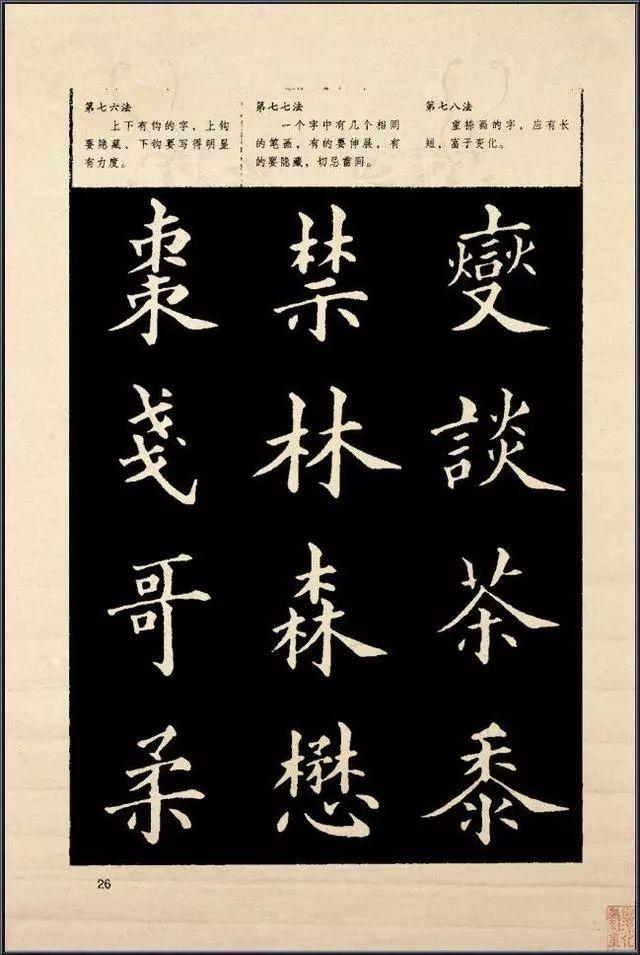 第七六法
上下有钩的字，上钩
要隐藏，下钩要写得明显
有力度。
第七七法
一个字中有几个相同
的笔画，有的要伸展，有
的要隐藏，切忌雷同。
第七八法
重捺画的字，应有长
短，富于变化。
棗戔哥柔
禁林森懋
燮談茶黍
26